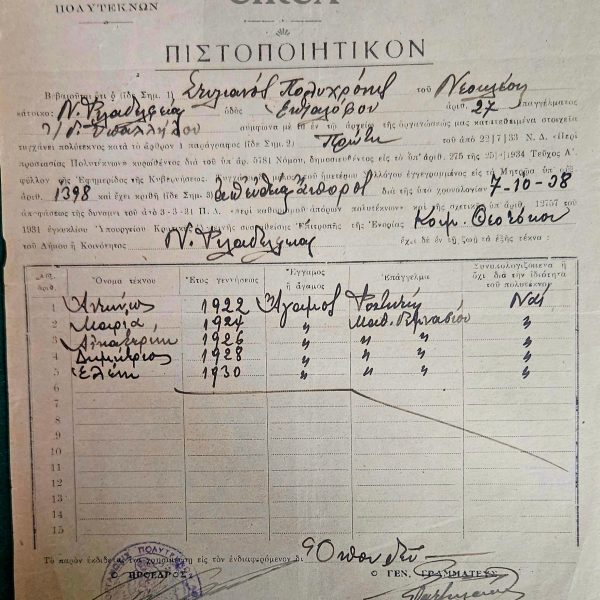 ΠΟΛΥΤΕΚΝΩΝ
ΠΙΣΤΟΠΟΙΗΤΙΚΟΝ
Βεβαιοῦται ὅτι ὁ (ἴδε Σημ. 1) Στυλιανὸς Πολυχρόνης τοῦ
κάτοικος Ν. Φιλαδελφείας ὁδὸς ἀριθ. 27 ἐπαγγέλματος
σύμφωνα μὲ τὰ ἐν τῷ ἀρχείῳ τῆς ὀργανώσεώς μας κατατεθειμένα στοιχεῖα
τυγχάνει πολύτεκνος κατὰ τὸ ἄρθρον 1 παράγραφος (ἴδε Σημ. 2) Πρώτη τοῦ ἀπὸ 22)7)33 Ν. Δ. «Περὶ
προστασίας Πολυτέκνων» κυρωθέντος διὰ τοῦ ὑπ' ἀριθ. 5781 Νόμου, δημοσιευθέντος εἰς τὸ ὑπ' ἀριθ. 275 τῆς 1934 Τεῦχος Α'
φύλλον τῆς Ἐφημερίδος τῆς Κυβερνήσεως. τοῦ ἡμετέρου Συλλόγου ἐγγεγραμμένος εἰς τὸ Μητρῷον ὑπ'
ἀριθ. 1398 καὶ ἔχει κριθῆ (ἴδε Σημ. 3) διὰ τῆς ὑπὸ χρονολογίαν 7-10-38
ἀποφάσεως τῆς δυνάμει τοῦ ἀπὸ 3-3-31 Π. Δ. «περὶ καθορισμοῦ ἀπόρων πολυτέκνων» καὶ τῆς σχετικῆς ὑπ' ἀριθ. 12757 τοῦ
1931 ἐγκυκλίου Ὑπουργείου συσταθείσης Ἐπιτροπῆς τῆς Ἐνορίας Κοιμ. Θεοτόκου
τοῦ Δήμου ἢ Κοινότητος Ν. Φιλαδελφείας ἔχει δὲ ἐν τῇ ζωῇ τὰ ἑξῆς τέκνα:
ἀριθ. Ὄνομα τέκνου Ἔτος γεννήσεως Ἔγγαμος ἢ ἄγαμος Ἐπάγγελμα Συνυπολογιζόμενα ἢ ὄχι διὰ τὴν ἰδιότητα τοῦ πολυτέκνου
1 1922 Ἄγαμος Ναί
2 Μαρία 1924 " Μαθ. Γυμνασίου "
3 Αἰκατερίνη 1926 " " " "
4 Δημήτριος 1928 " " " "
5 Ἑλένη 1930 " " " "
6
7
8
9
10
11
12
13
14
15
Τὸ παρὸν ἐκδίδεται ἵνα χρησιμεύσῃ εἰς τὸν ἐνδιαφερόμενον δι
Ὁ ΠΡΟΕΔΡΟΣ Ὁ ΓΕΝ. ΓΡΑΜΜΑΤΕΥΣ